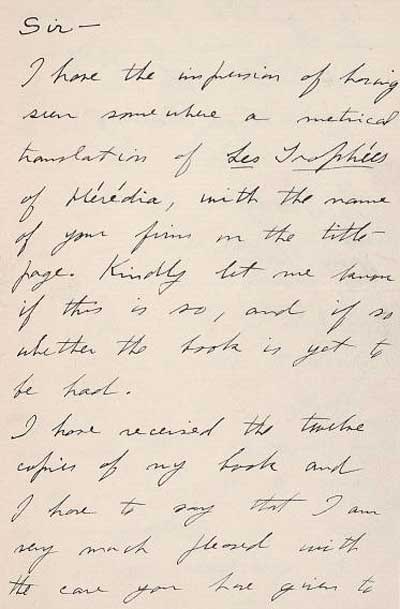 Sir—
I have the impression of having
seen somewhere a metrical
translation of Les Trophées
of Hérédia, with the name
of your firm on the title-
page. Kindly let me know
if this is so, and if so
whether the book is yet to
be had.
I have received the twelve
copies of my book and
I have to say that I am
very much pleased with
the care you have given to